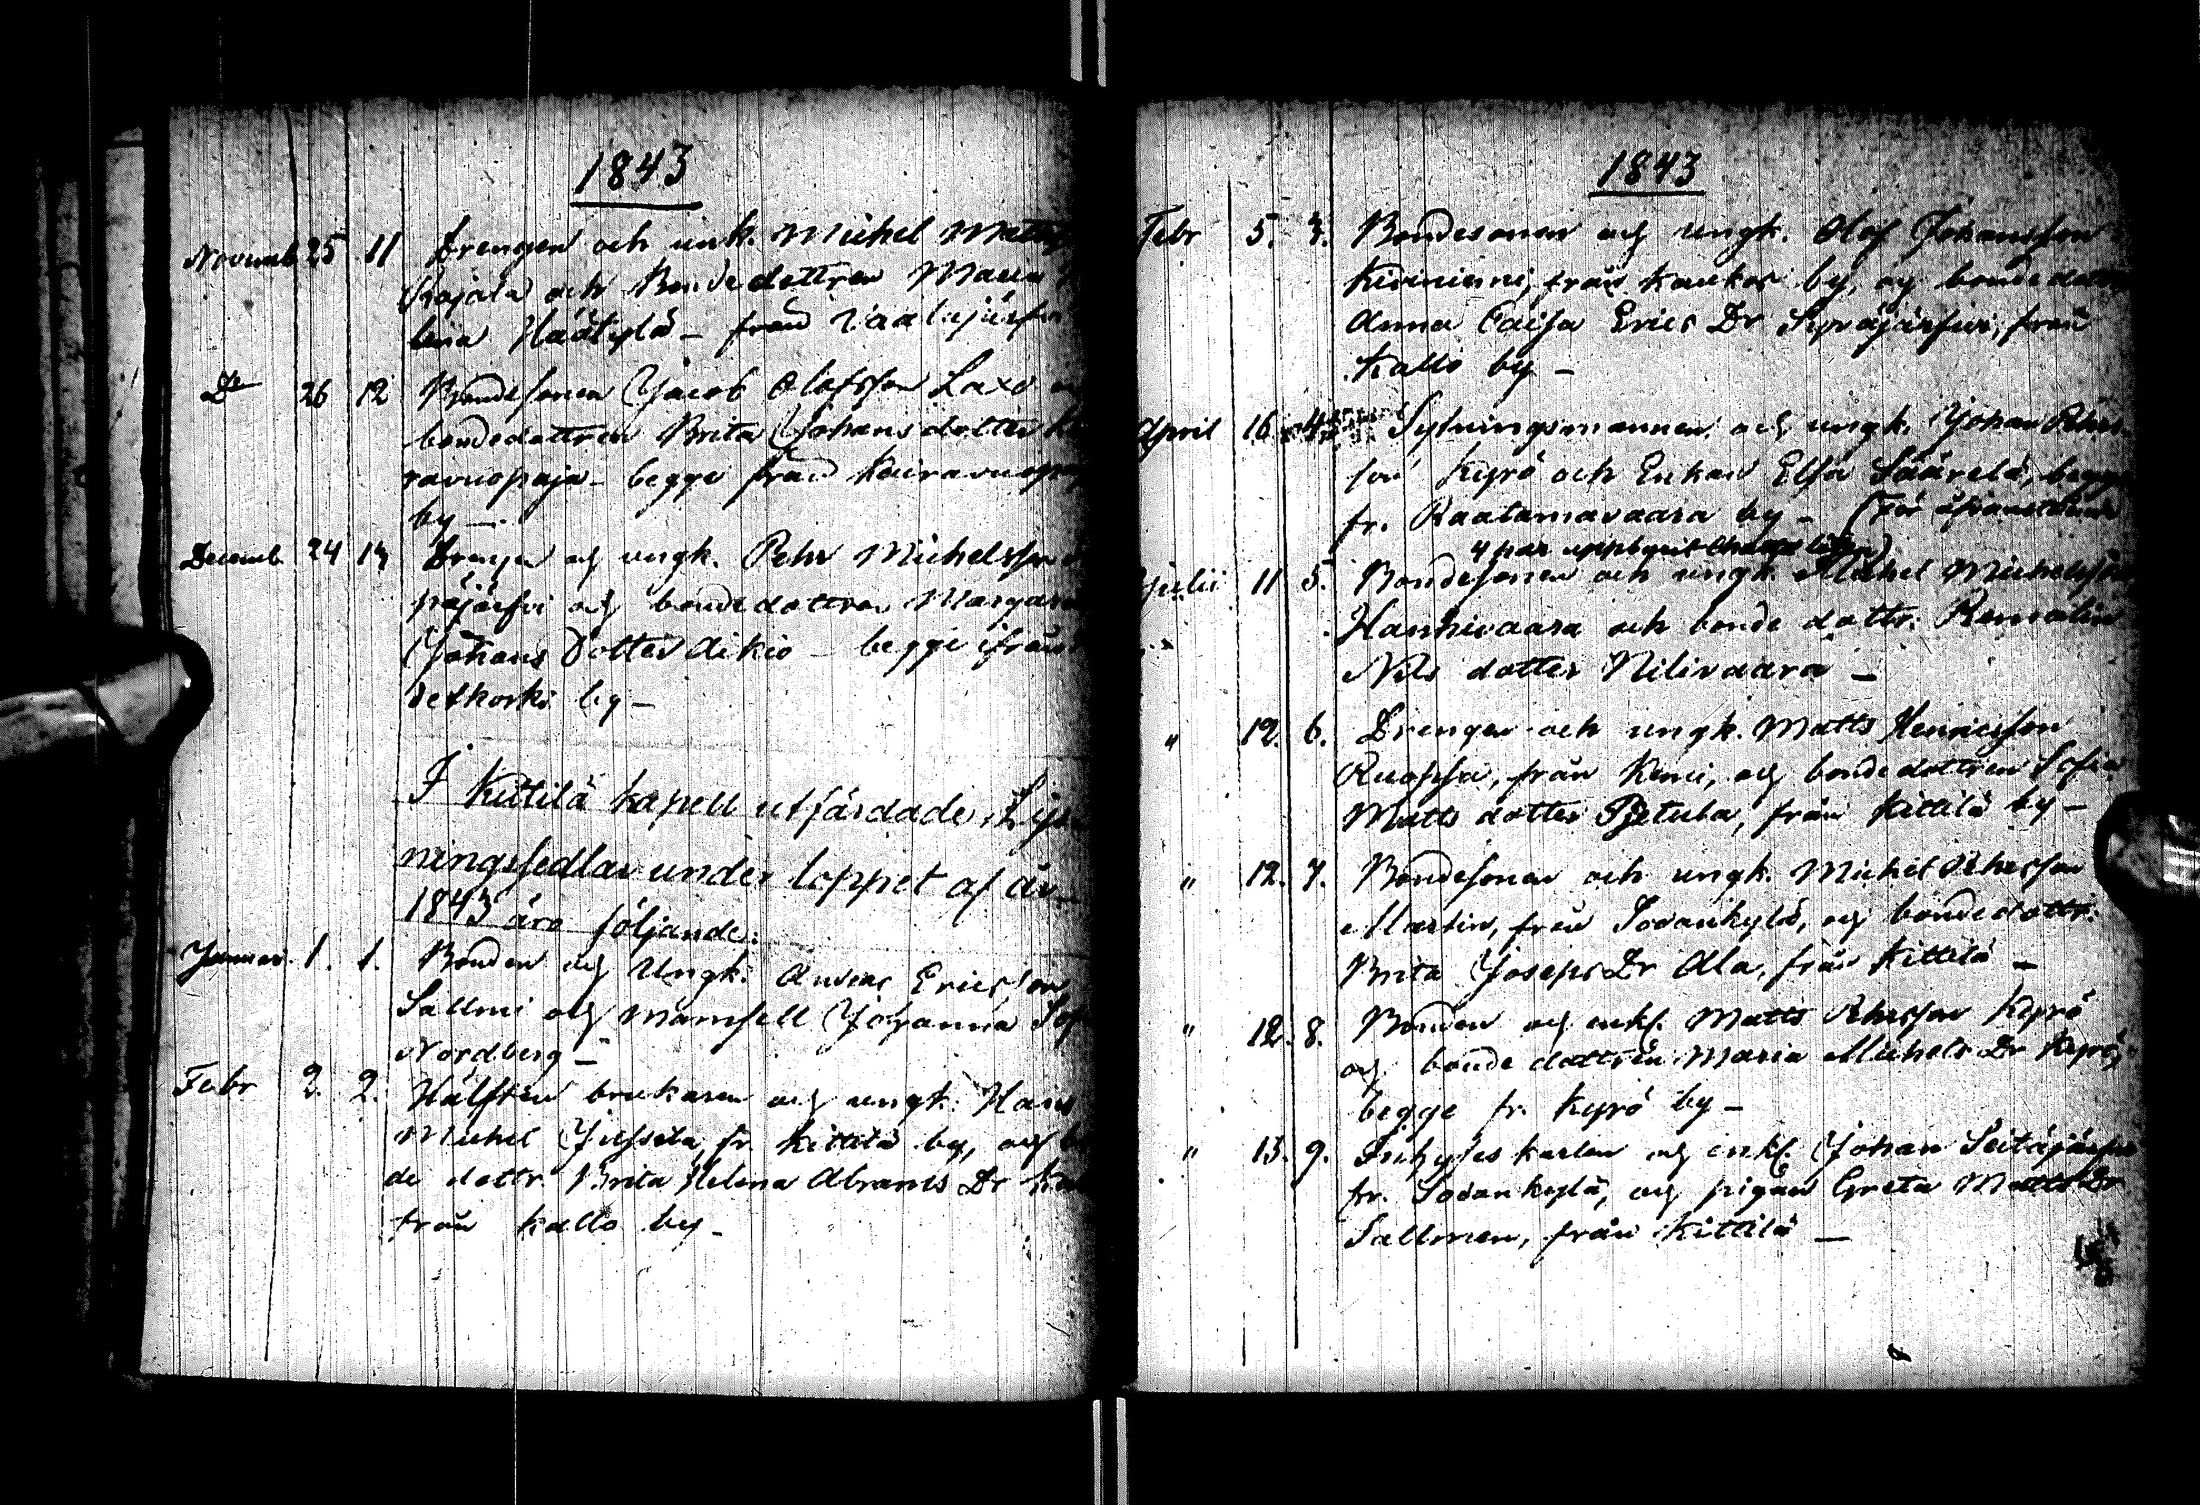 1843
Novemb 25 11 Drengen och unk. Michel Matts
Kojala och Bondedottren Maria
lena Häätylä – från Vaalajärfvi
Do 26 12 Bondesonen Jacob Olofsson Laxo
bondedottren Brita Johansdotter
ravuopaja – begge från Kairavuopa
by –.
Decemb. 24 13 Drengen och ungk. Pehr Michelsson
päjärfvi och bondedottren Margare
Johans Dotter Aikio – begge ifrån
by –
I Kittilä kapell utfärdade Lys
ningssedlar under loppet af år
1843 äro följande:
Januar. 1. 1. Bonden och Ungk. Andreas Ericsson
Sallmi och Mamsell Johanna Sof
Nordberg –
Febr 2. 2. Hälften brukaren och ungk. Hans
Michel Jussila, fr. Kittilä by, och b
de dottr. Brita Helena Abrams Dr
från Kallo by –
1843
Febr 5. 3. Bondesonen och ungk. Olof Johansson
Kiviniemi, från Kaukos by, och bondedottr
Anna Caisa Erics Dr Syväjärfvi, från
Kallo by –
April 16 4 Sytningsmannen och ungk. Johan Pehrs
son Kyrö och Enkan Elsa Säärelä, begge
fr. Raatamavaara by – (För
4 par
Julii 11 5. Bondesonen och ungk. Michel Michelsson
Hanhivaara och bonde dottr.
Nils dotter Nilivaara –
" 12. 6. Drengen och ungk. Matts Henricsson
från Kemi, och bondedottren Sofia
Matts dotter Pjetula, från Kittilä by –
" 12. 7. Bondesonen och ungk. Michel Pehrsson
Martin, från Sodankylä, och bondedottr.
Brita Josephs Dr Ala, från Kittilä –
" 12. 8. Bonden och enkl. Matts Pehrsson Kyrö
och bonde dottren Maria Michels Dr Kyrö,
begge fr. Kyrö by –
" 13. 9. Inhyses karlen och enkl. Johan Seitajärfvi
fr. Sodankylä, och pigan Greta Matts Dr
Sallmen, från Kittilä –